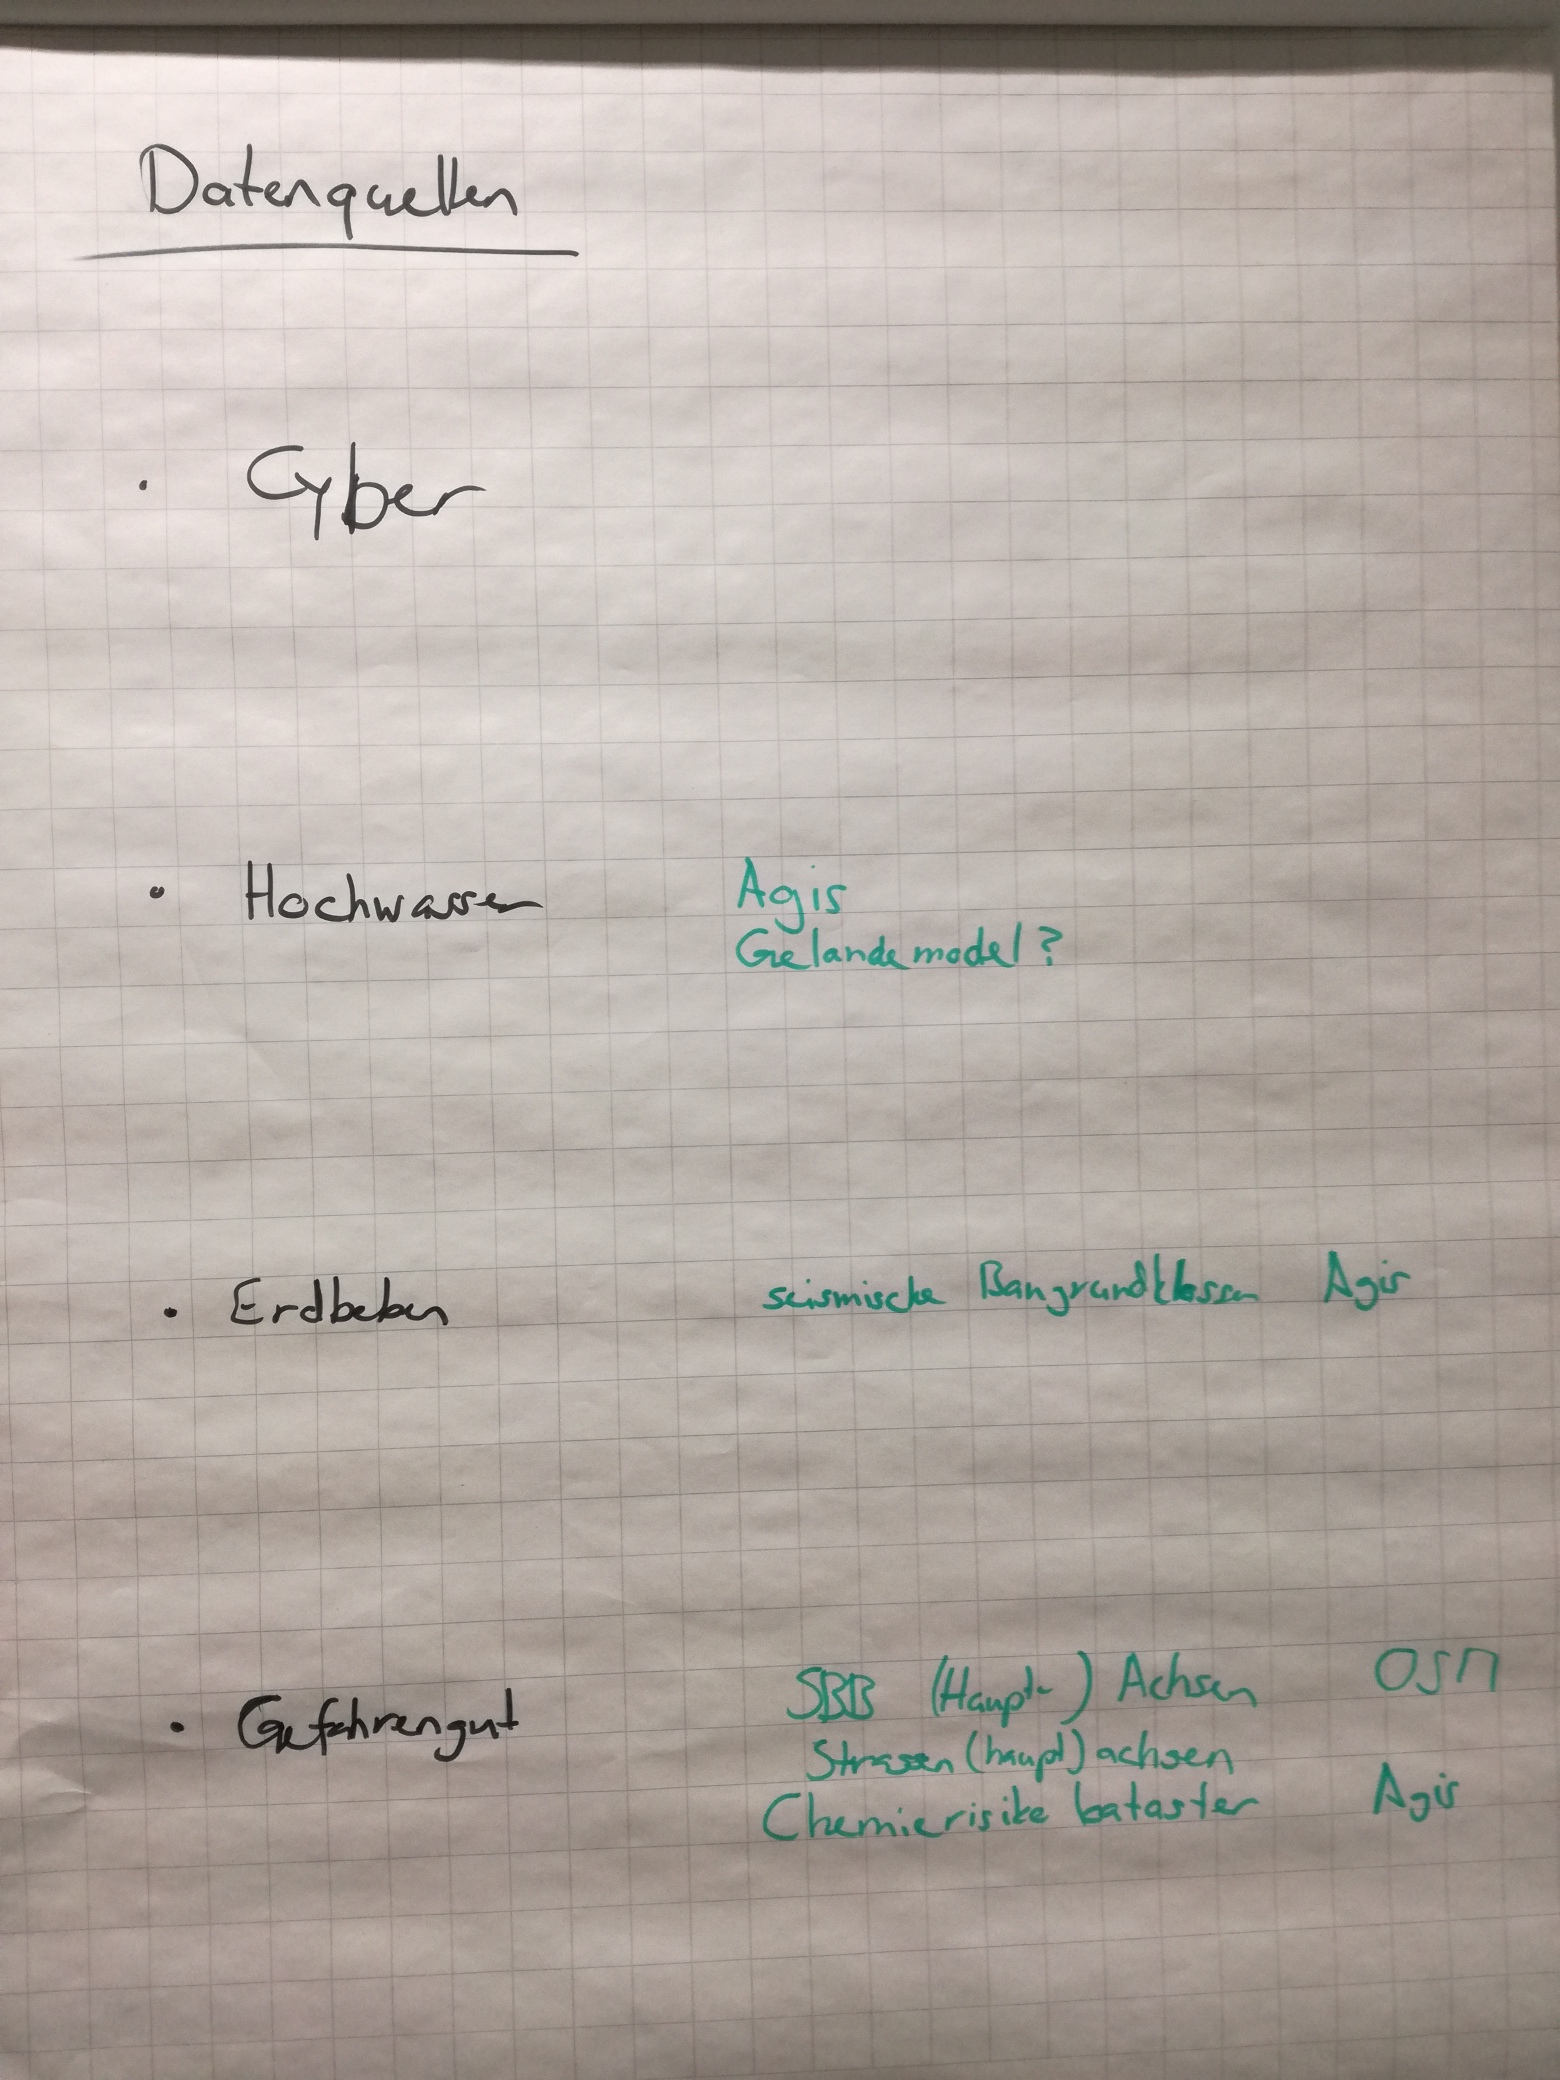 Datenquellen
· Cyber
· Hochwasser Agis
Gelandemodel?
· Erdbeben seismische Baugrundklassen Agis
· Gefahrengut SBB (Haupt-) Achsen OSM
Strassen(haupt)achsen
Chemierisikokataster Agis